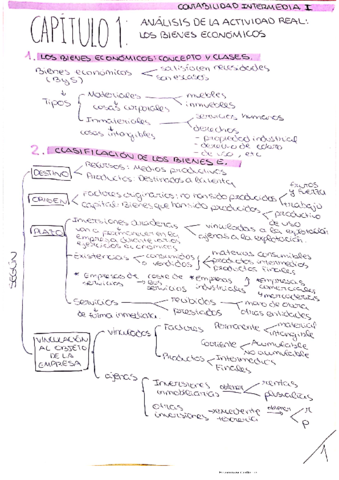 CONTABILIDAD INTERMEDIA I
CAPÍTULO 1: ANÁLISIS DE LA ACTIVIDAD REAL:
LOS BIENES ECONÓMICOS
1. LOS BIENES ECONÓMICOS: CONCEPTO Y CLASES.
Bienes económicos satisfacen necesidades
(B y S) son escasos
Tipos Materiales muebles
cosas corporales inmuebles
Inmateriales servicios humanos
cosas intangibles derechos
- propiedad industrial
- derecho de cobro
- de uso, etc
2. CLASIFICACIÓN DE LOS BIENES E.
SEGÚN
DESTINO Recursos: Medios productivos
Productos: Destinados a la venta
ORIGEN Factores originarios: no han sido producidos trabajo
Capital: Bienes que han sido producidos productivo
de uso
PLAZO Inversiones duraderas vinculadas a la explotación
van a permanecer en la ajenas a la explotación.
empresa durante varios
ejercicios económicos
Existencias consumidos materias consumibles
o vendidos productos intermedios
productos finales
* empresas de servicios resto de bs * empresas industriales * empresas comerciales
Servicios recibidos mano de obra
de forma inmediata prestados otras entidades
VINCULACIÓN AL OBJETO DE LA EMPRESA
vinculados Factores Permanente material
intangible
Corriente Acumulable
No acumulable
Productos Intermedios
Finales
ajenos Inversiones inmobiliarias obtener rentas
plusvalías
otras inversiones excedente tesorería obtener r
p
1